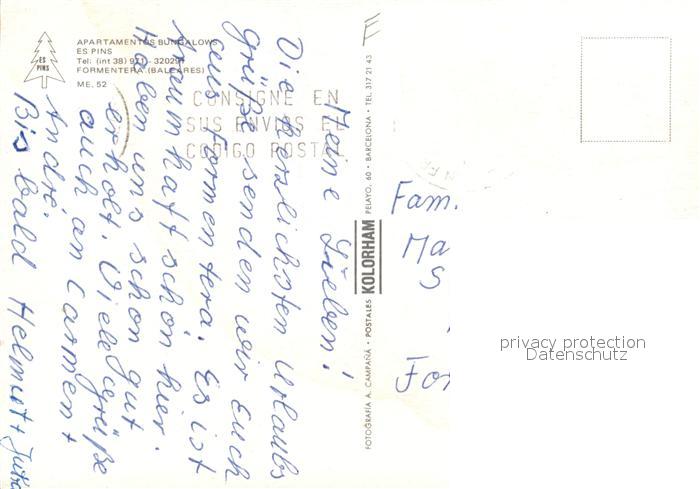 APARTAMENTOS BUNGALOWS
ES PINS
Tel: (int 38) 971 - 320291
FORMENTERA (BALEARES)
ME, 52
ES
PINS
CONSIGNE EN
SUS ENVIOS EL
CODIGO POSTAL
Meine Lieben!
Die herzlichsten Urlaubs
grüße senden wir Euch
aus Formentera. Es ist
traumhaft schön hier.
Haben uns schon gut
erholt. Viele Grüße
auch an Carmen +
André.
Bis bald Helmut + Jutta
FOTOGRAFÍA A. CAMPAÑÁ - POSTALES KOLORHAM PELAYO, 60 - BARCELONA - TEL. 317 21 43
F
Fam.
Ma
S
For
privacy protection
Datenschutz